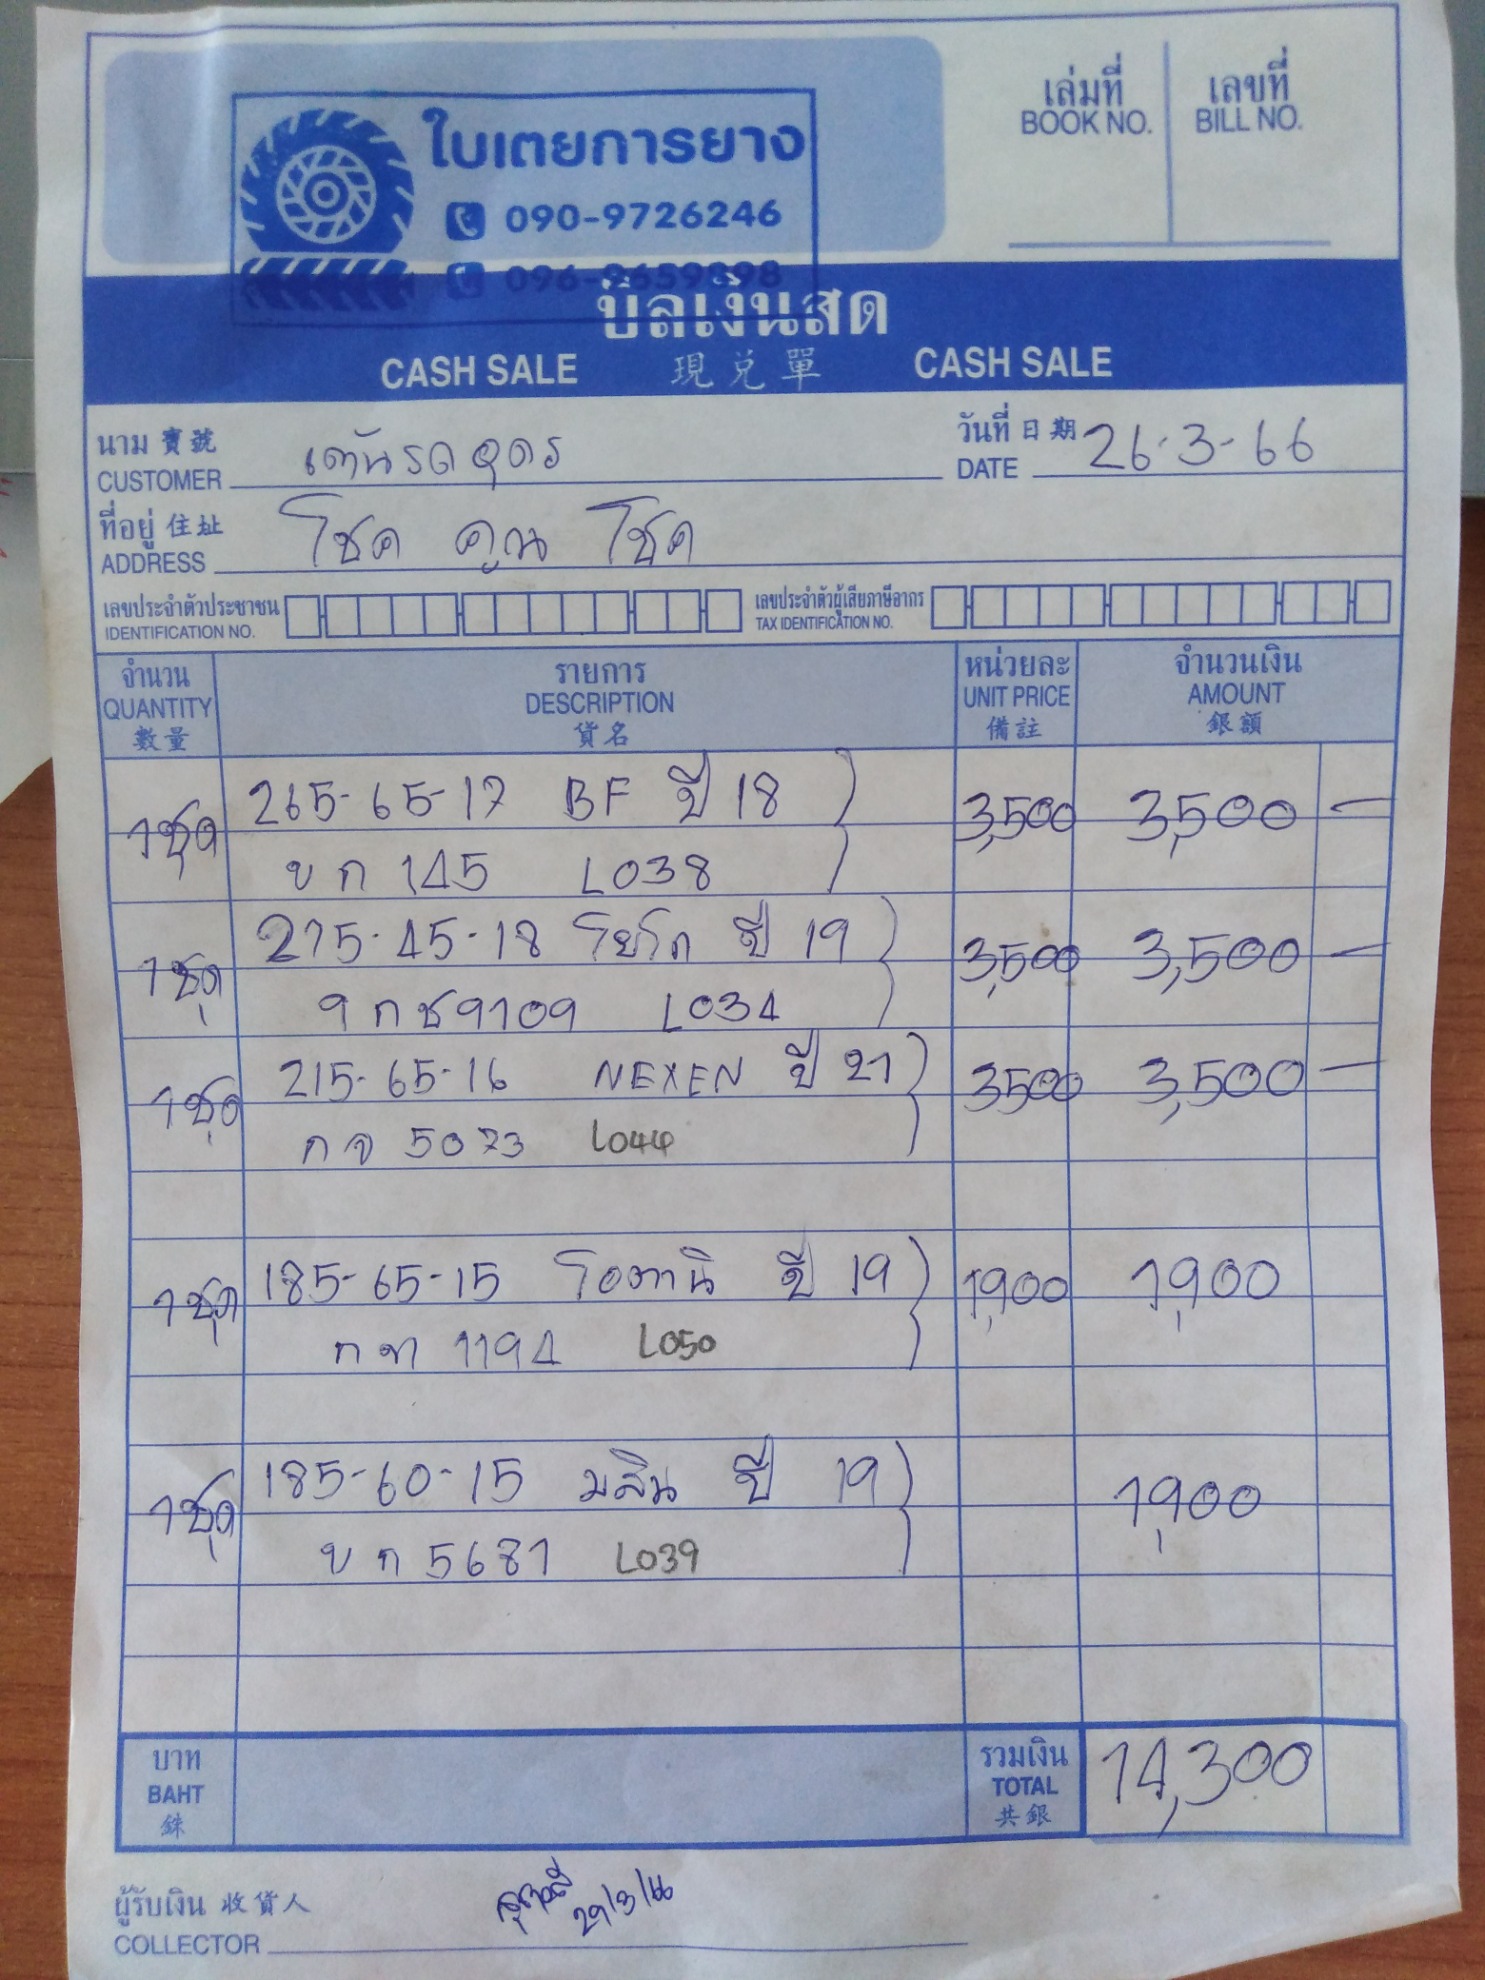 ใบเตยการยาง
090-9726246
096-2659898
เล่มที่ เลขที่
BOOK NO. BILL NO.
บิลเงินสด
CASH SALE 現兌單 CASH SALE
นาม 寶號 วันที่ 日期 26-3-66
CUSTOMER เต้นรถอุดร DATE
ที่อยู่ 住址 โชค คูณ โชค
ADDRESS
เลขประจำตัวประชาชน เลขประจำตัวผู้เสียภาษีอากร
IDENTIFICATION NO. TAX IDENTIFICATION NO.
จำนวน รายการ หน่วยละ จำนวนเงิน
QUANTITY DESCRIPTION UNIT PRICE AMOUNT
數量 貨名 備註 銀額
1ชุด 265-65-17 BF ปี 18 3,500 3,500 -
ขก 145 L038
1ชุด 275-45-18 โยโก ปี 19 3,500 3,500 -
9กช9109 L034
1ชุด 215-65-16 NEXEN ปี 21 3500 3,500 -
กจ 5073 L044
1ชุด 185-65-15 โอตานิ ปี 19 1,900 1,900
กท 1194 L050
1ชุด 185-60-15 มสิน ปี 19 1,900
ขก 5681 L039
บาท รวมเงิน
BAHT TOTAL 14,300
銖 共銀
ผู้รับเงิน 收貨人 29/3/66
COLLECTOR